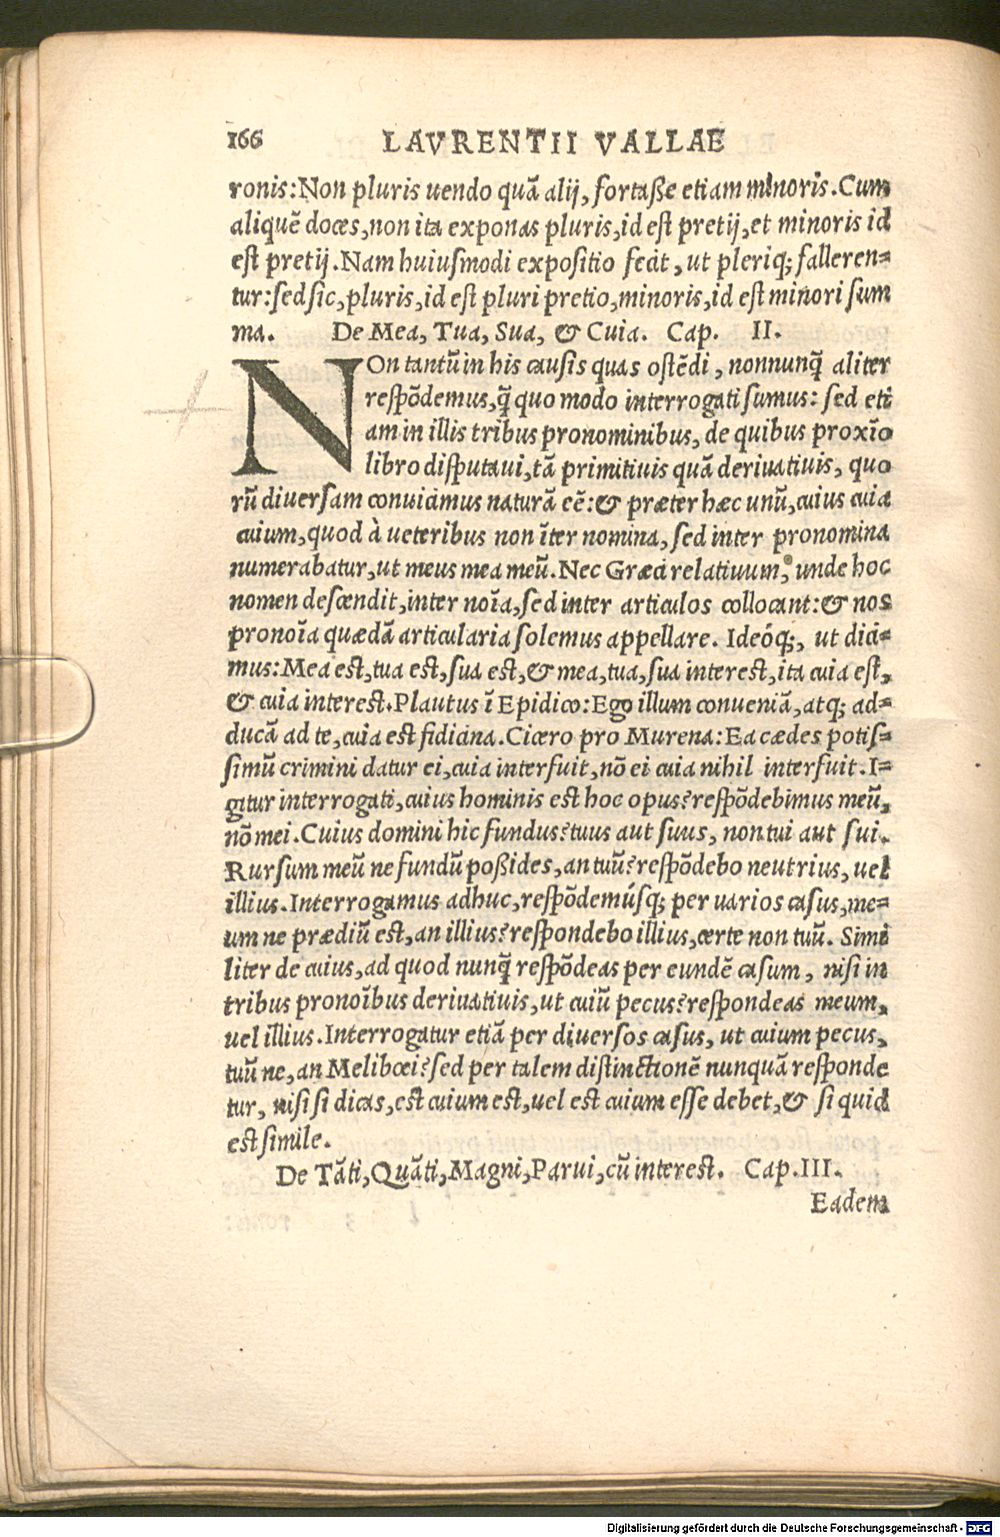 166 LAVRENTII VALLAE
ronis: Non pluris uendo quā alij, fortaße etiam minoris. Cum
aliquē doces, non ita exponas pluris, id est pretij, et minoris id
est pretij. Nam huiusmodi expositio fecit, ut pleriq; falleren=
tur: sed sic, pluris, id est pluri pretio, minoris, id est minori sum
ma. De Mea, Tua, Sua, & Cuia. Cap. II.
NOn tantū in his causis quas ostēdi, nonnunq̄ aliter
respōdemus, q̄ quo modo interrogati sumus: sed eti
am in illis tribus pronominibus, de quibus proxīo
libro disputaui, tā primitiuis quā deriuatiuis, quo
rū diuersam conuicimus naturā eē: & præter hæc unū, cuius cuia
cuium, quod à ueteribus non īter nomina, sed inter pronomina
numerabatur, ut meus mea meū. Nec Græci relatiuum, unde hoc
nomen descendit, inter noīa, sed inter articulos collocant: & nos
pronoīa quædā articularia solemus appellare. Ideóq;, ut dici=
mus: Mea est, tua est, sua est, & mea, tua, sua interest, ita cuia est,
& cuia interest. Plautus ī Epidico: Ego illum conueniā, atq; ad=
ducā ad te, cuia est fidicina. Cicero pro Murena: Ea cædes potis=
simū crimini datur ei, cuia interfuit, nō ei cuia nihil interfuit. I=
gitur interrogati, cuius hominis est hoc opus? respōdebimus meū,
nō mei. Cuius domini hic fundus? tuus aut suus, non tui aut sui.
Rursum meū ne fundū poßides, an tuū? respōdebo neutrius, uel
illius. Interrogamus adhuc, respōdemúsq; per uarios casus, me=
um ne prædiū est, an illius? respondebo illius, certe non tuū. Simi
liter de cuius, ad quod nunq̄ respōdeas per eundē casum, nisi in
tribus pronoībus deriuatiuis, ut cuiū pecus? respondeas meum,
uel illius. Interrogatur etiā per diuersos casus, ut cuium pecus,
tuū ne, an Melibœi? sed per talem distinctionē nunquā responde
tur, nisi si dicas, est cuium est, uel est cuium esse debet, & si quid
est simile.
De Tāti, Quāti, Magni, Parui, cū interest. Cap. III.
Eadem
Digitalisierung gefördert durch die Deutsche Forschungsgemeinschaft - DFG